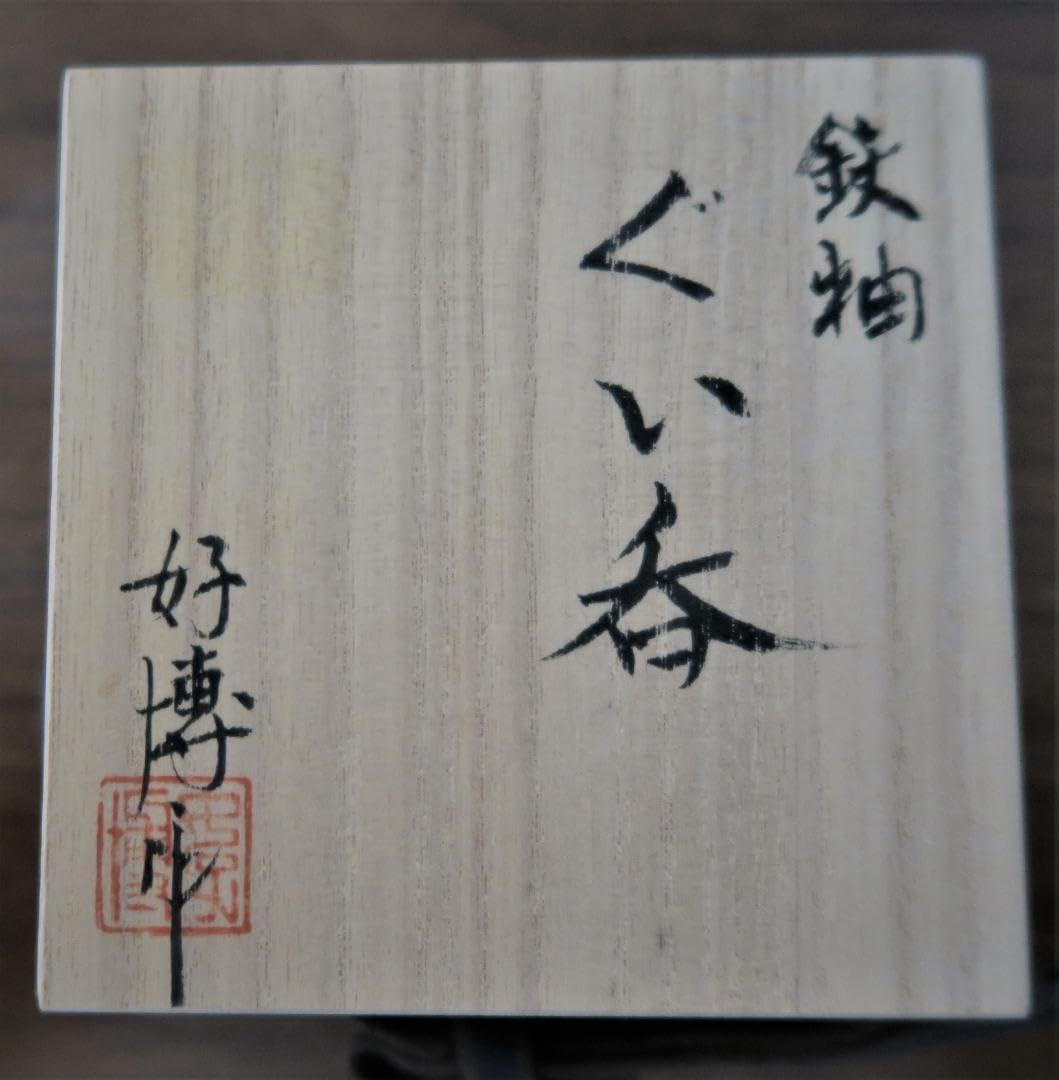 鉄釉
ぐい呑
好博作